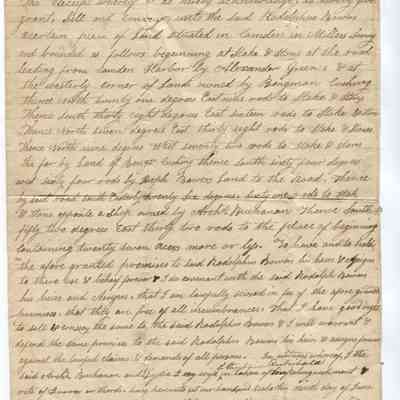 the receipt whereof I do hereby acknowledge, do hereby give
grant, Sell and Convey unto the said Rodolphus Bowers
a certain piece of Land situated in Camden in
and bounded as follows beginning at Stake & Stones at the road
leading from Camden Harbor by Alexander Green's & at
the westerly corner of Land owned by Cushing
thence North twenty one degrees East nine rods to Stake & Stones
Thence South thirty eight degrees East sixteen rods to Stake & Stones
Thence North seven degrees East thirty eight rods to Stake & Stones
Thence North nine degrees West seventy two rods to Stake & Stones
the far by Land of Cushing thence south sixty four degrees
west sixty four rods by Joseph Bowers Land to the Road, Thence
by said road South Easterly twenty six degrees sixty one rods to Stake
& Stones opposite a Ship owned by Archd Buchanan Thence South
fifty two degrees East thirty two rods to the place of beginning
containing twenty seven acres more or less. To have and to hold
the afore granted premises to said Rodolphus Bowers his heirs & assigns
to there use & behoof forever & I do covenant with the said Rodolph Bowers
his heirs and Assigns, that I am lawfully seized in fee of the afore granted
premises, that they are free of all incumbrances. That I have good right
to sell & convey the same to the said Rodolphus Bowers & I will warrant &
defend the same premises to the said Rodolphus Bowers his heirs & assigns forever
against the lawful claims & demands of all persons. In witness whereof, I the
said Archd Buchanan and Lydia my wife in token of relinquishment of
of Dower in thirds have hereunto set our hands & seals this day of June